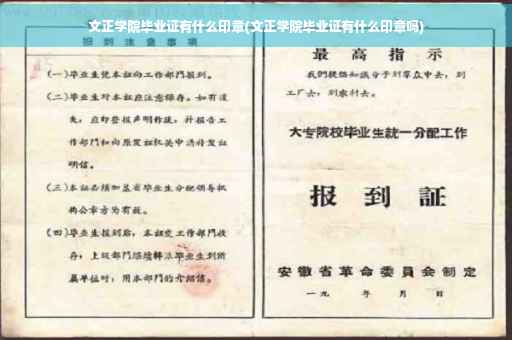 文正学院毕业证有什么印章(文正学院毕业证有什么印章吗)
报到注意事项
(一)毕业生凭本证向工作部门报到。
(二)毕业生对本证应注意保存。如有遗
失,应即登报声明作废,并报告工
作部门和向原发证机关申请补发证
明信。
(三)本证必须加盖省毕业生分配领导机
构公章方为有效。
(四)毕业生报到后,本证交工作部门收
存;上级部门
毕业生到所
属单位时,用本部门的介绍信。
最高指示
我们提倡知识分子到羣众中去,到
工厂去,到农村去。
大专院校毕业生統一分配工作
报到証
安徽省革命委員会制定
一九 年 月 日